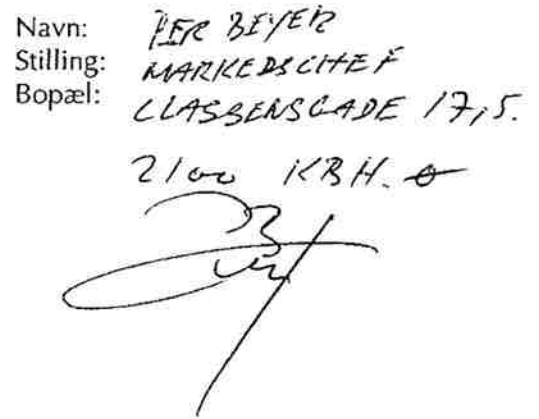 Navn: PER BEYER
Stilling: MARKEDSCHEF
Bopæl: CLASSENSGADE 17, 5.
2100 KBH. Ø